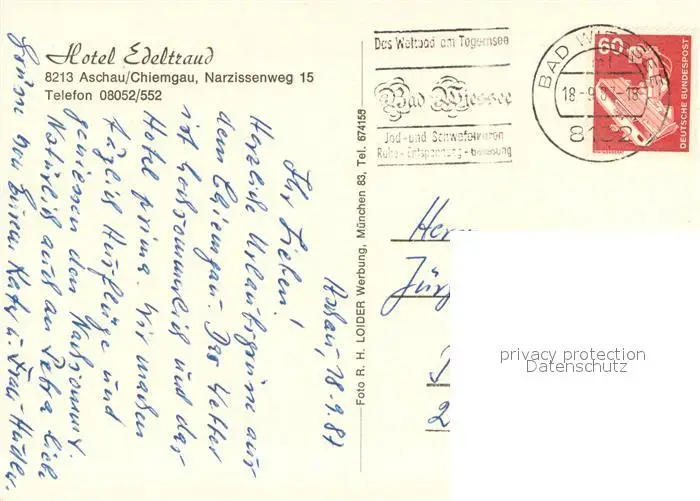 Hotel Edeltraud
8213 Aschau/Chiemgau, Narzissenweg 15
Telefon 08052/552
Aschau, 18-9.87
Ihr Lieben!
Herzliche Urlaubsgrüsse aus
dem Chiemgau. Das Wetter
ist hochsommerlich und das
Hotel prima. Wir machen
täglich Ausflüge und
geniessen den Nachsommer.
Natürlich auch an Petra liebe
Grüsse von Euren Käthe u.
Foto R. H. LOIDER Werbung, München 83, Tel. 674155
Das Weltbad am Tegernsee
Bad Wiessee
Jod- und Schwefelthermen
Ruhe - Entspannung - Genesung
BAD WIESSEE
18-9.87-18
8182
60
DEUTSCHE BUNDESPOST
Her
Jür
2
privacy protection
Datenschutz